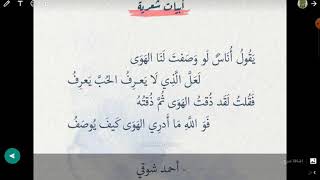 أبيات شعرية
يَقُولُ أُنَاسٌ لَو وَصَفْتَ لَنَا الهَوَى
لَعَلَّ الَّذِي لَا يَعرِفُ الحُبَّ يَعرِفُ
فَقُلتُ لَقَد ذُقتُ الهَوَى ثُمَّ ذُقتُهُ
فَوَ اللَّهِ مَا أَدرِي الهَوَى كَيفَ يُوصَفُ
- أحمد شوقي